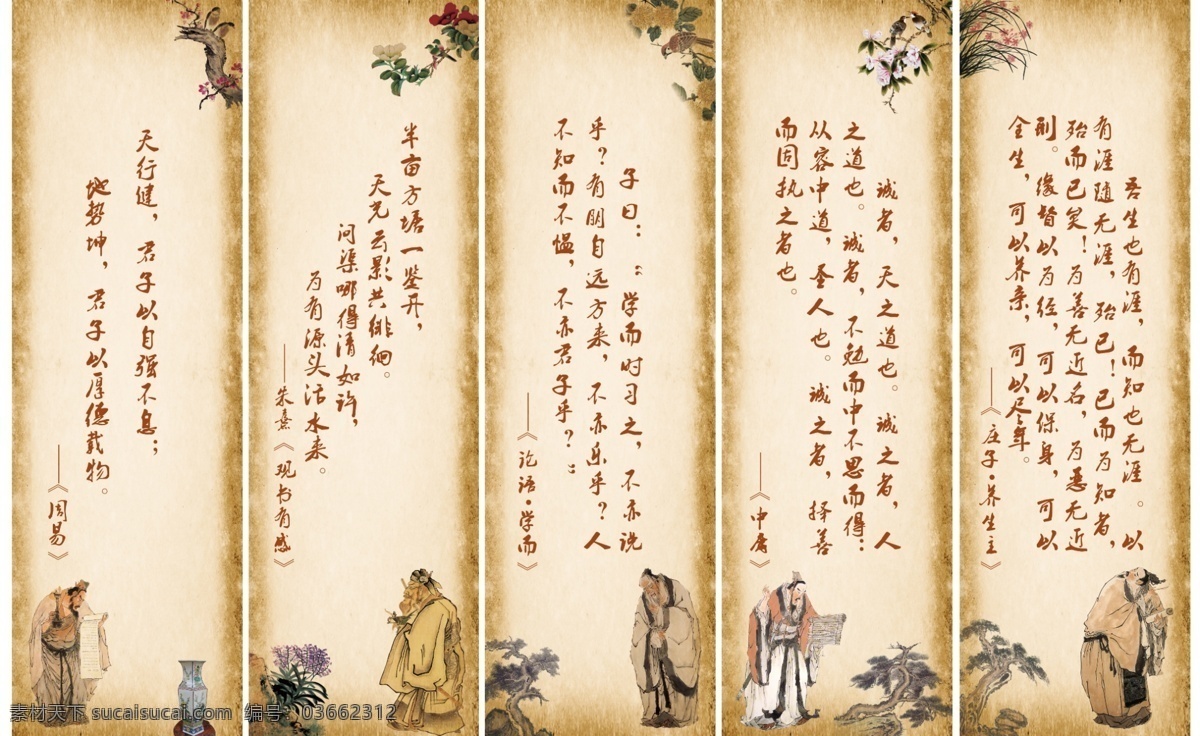 天行健，君子以自强不息；
地势坤，君子以厚德载物。
——《周易》
半亩方塘一鉴开，
天光云影共徘徊。
问渠哪得清如许，
为有源头活水来。
——朱熹《观书有感》
子曰：“学而时习之，不亦说
乎？有朋自远方来，不亦乐乎？人
不知而不愠，不亦君子乎？”
——《论语·学而》
诚者，天之道也。诚之者，人
之道也。诚者，不勉而中不思而得：
从容中道，圣人也。诚之者，择善
而固执之者也。
——《中庸》
吾生也有涯，而知也无涯。以
有涯随无涯，殆已！已而为知者，
殆而已矣！为善无近名，为恶无近
刑。缘督以为经，可以保身，可以
全生，可以养亲，可以尽年。
——《庄子·养生主》
素材天下 sucaisucai.com 编号：03662312